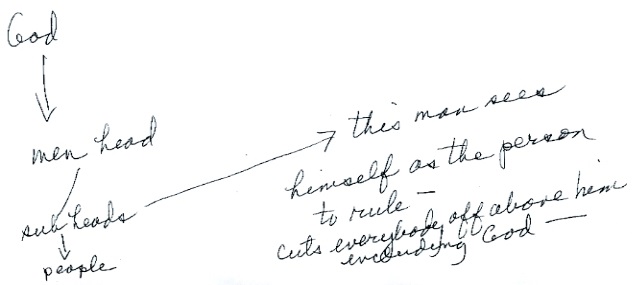 God
men head
sub heads
people
this man sees
himself as the person
to rule –
cuts everybody off above him
including God —